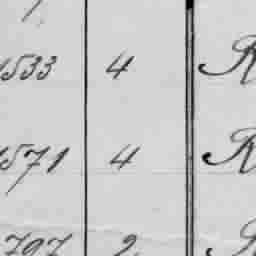 1533 4 R
1571 4 R
797 2